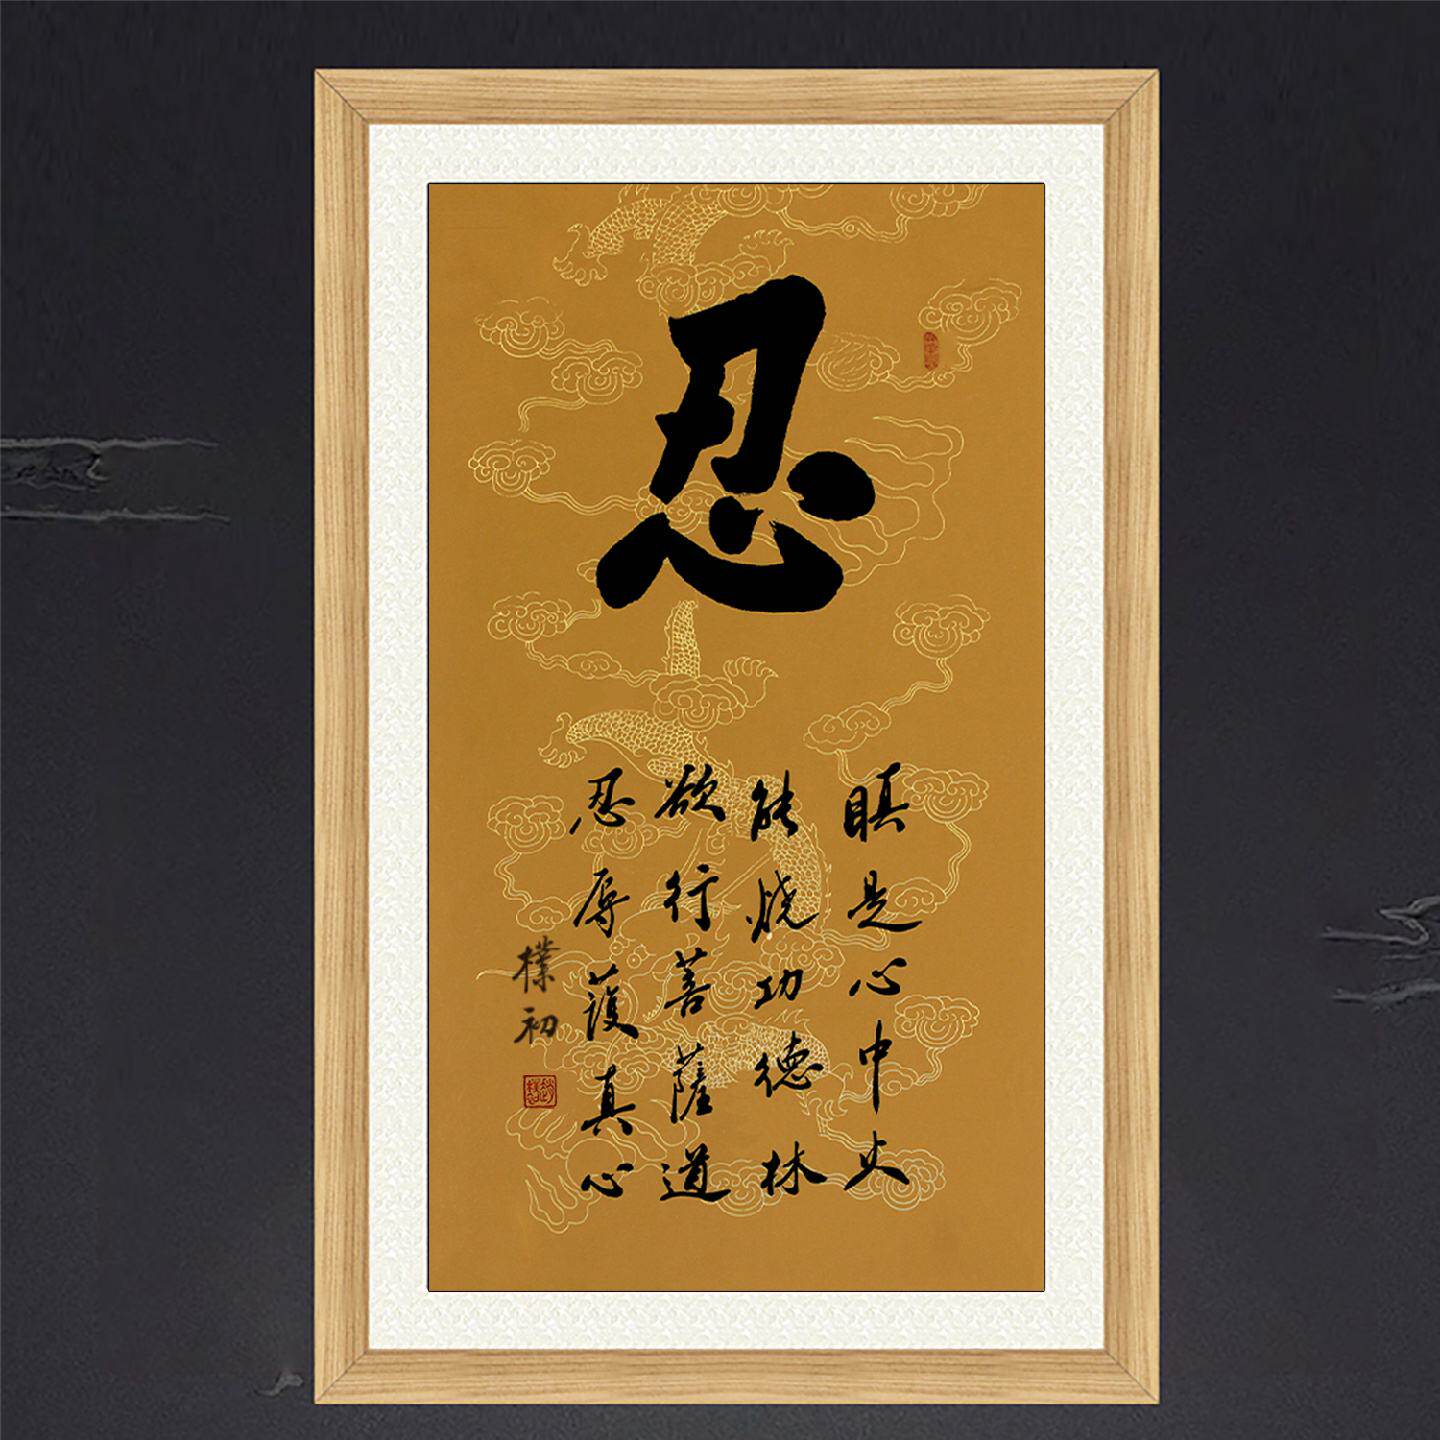 忍
瞋是心中火
能烧功德林
欲行菩薩道
忍辱護真心
樸初